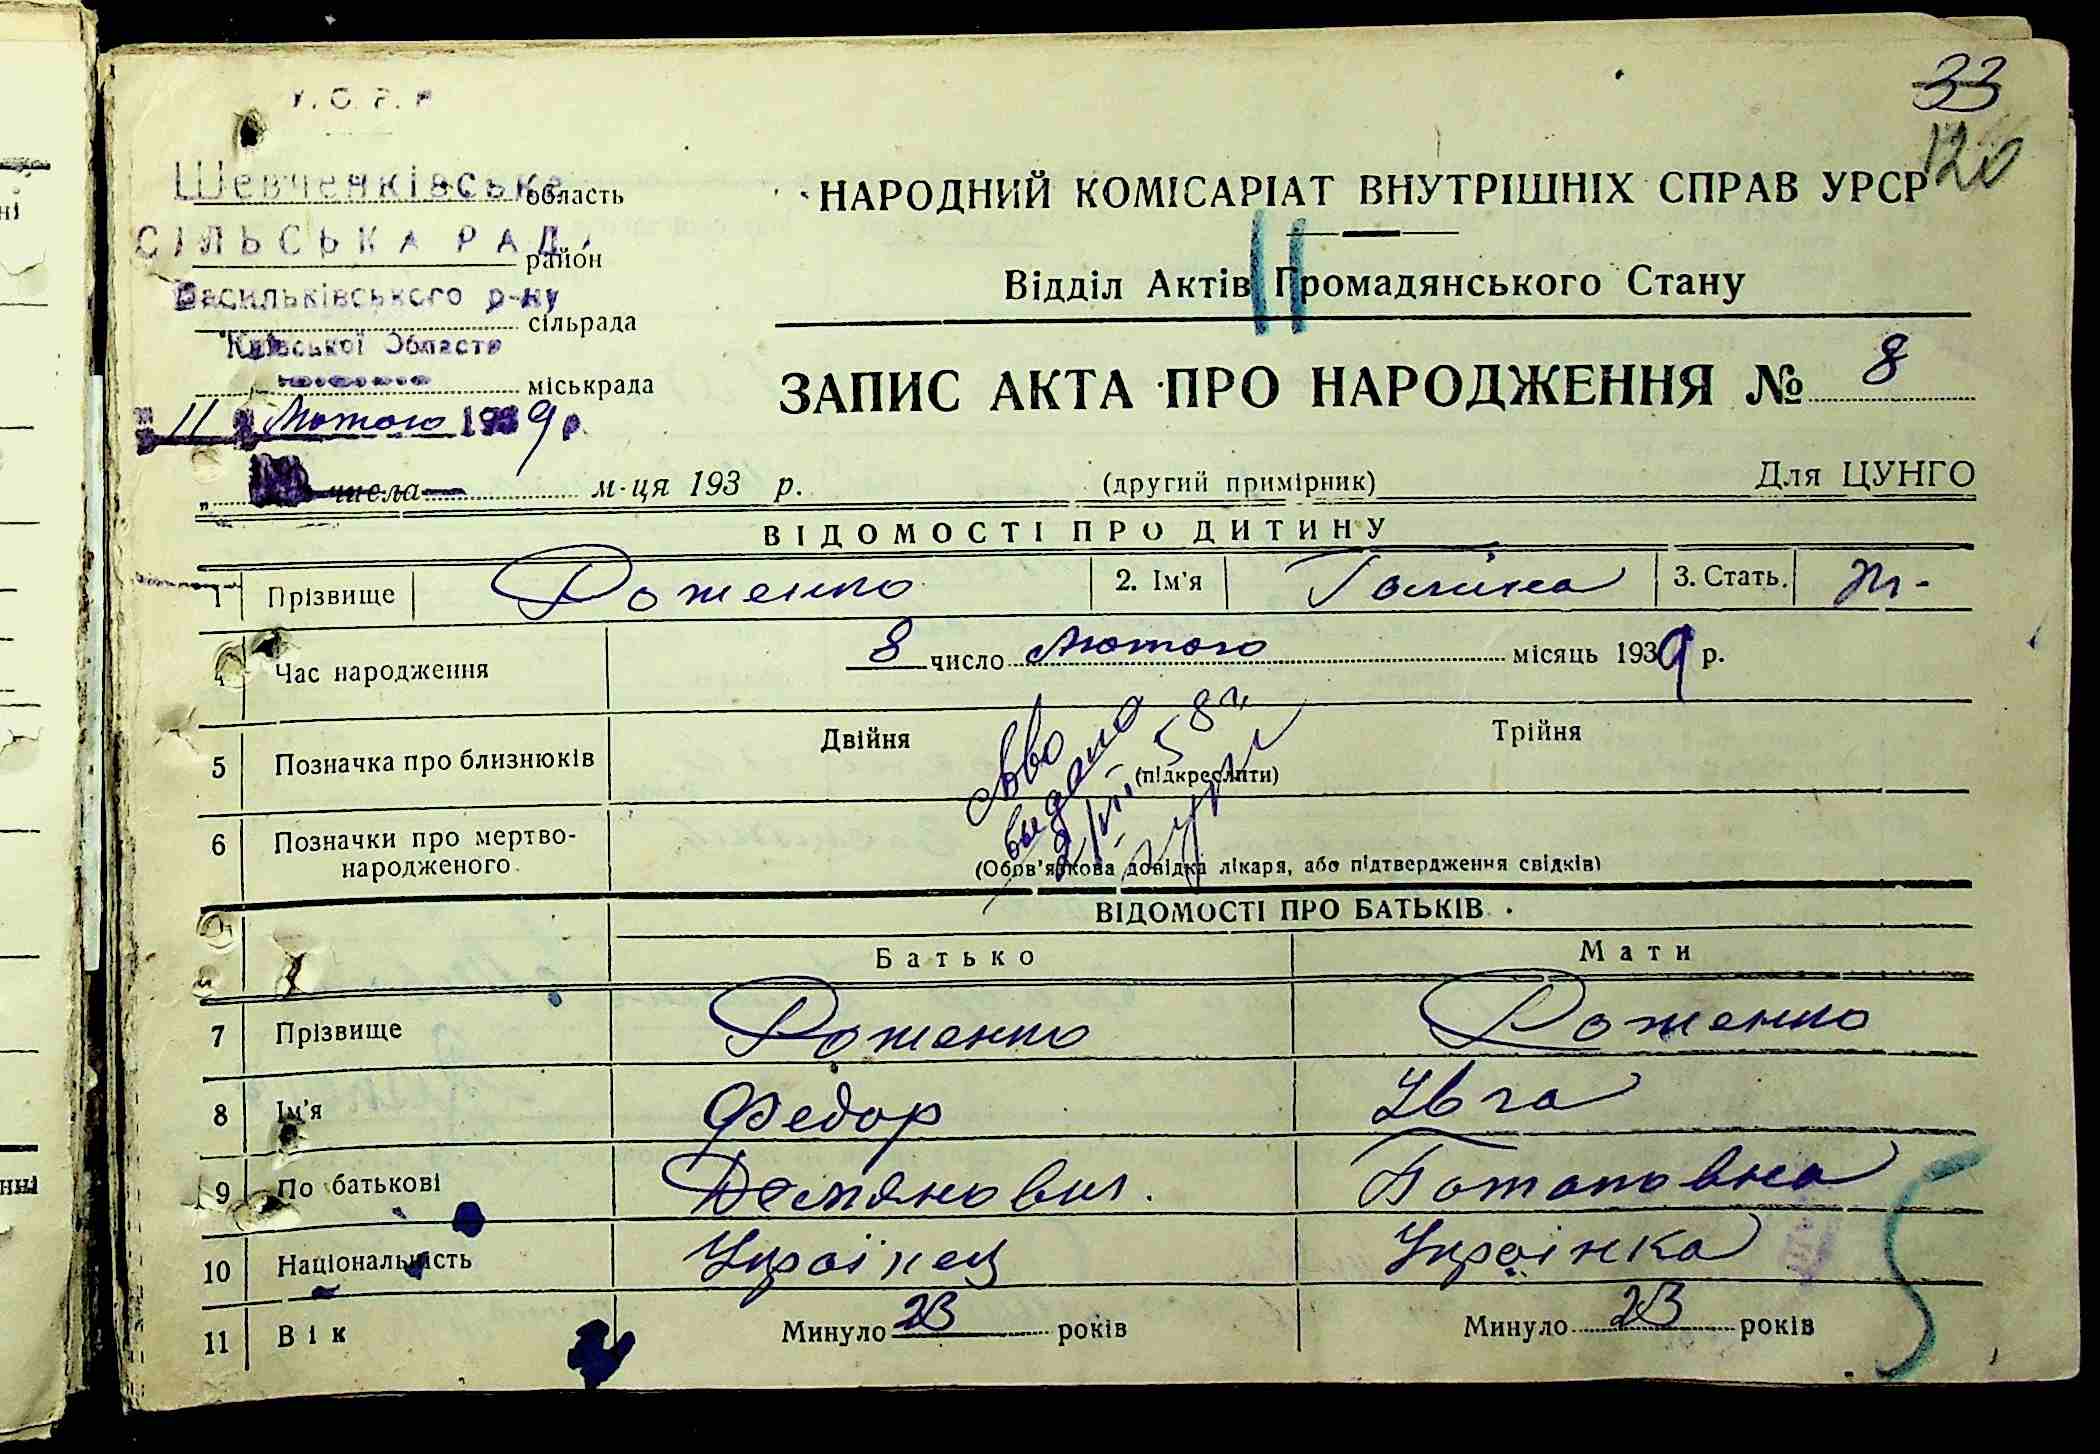 33
120
У.С.Р.Р
Шевченківська область
СІЛЬСЬКА РАД. район
Васильківського р-ну сільрада
Київської Области
міськрада
11 Лютого 1939 р.
числа м-ця 193 р.
НАРОДНИЙ КОМІСАРІАТ ВНУТРІШНІХ СПРАВ УРСР
Відділ Актів Громадянського Стану
ЗАПИС АКТА ПРО НАРОДЖЕННЯ № 8
(другий примірник) Для ЦУНГО
ВІДОМОСТІ ПРО ДИТИНУ
1 Прізвище Роженко 2. Ім'я Галина 3. Стать. Ж-
4 Час народження 8 число Лютого місяць 1939 р.
5 Позначка про близнюків Двійня (підкреслити) Трійня
6 Позначки про мертво-
народженого. (Обов'язкова довідка лікаря, або підтвердження свідків)
выдано
58 г.
ВІДОМОСТІ ПРО БАТЬКІВ
Батько Мати
7 Прізвище Роженко Роженко
8 Ім'я Федор Увга
9 По батькові Демянович. Потаповна
10 Національність Українец Українка
11 Вік Минуло 23 років Минуло 23 років